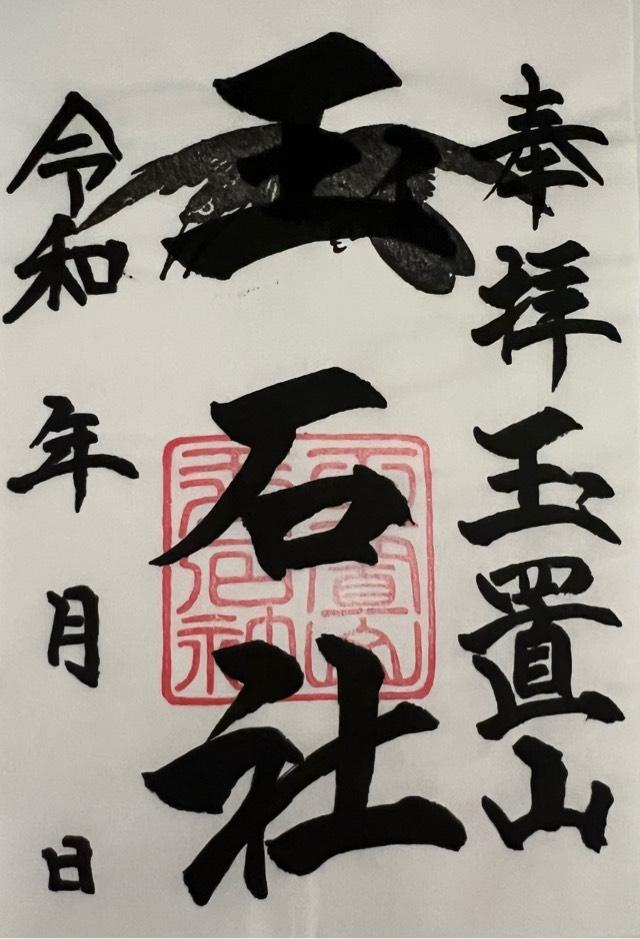 奉拝玉置山
玉石社
令和 年 月 日